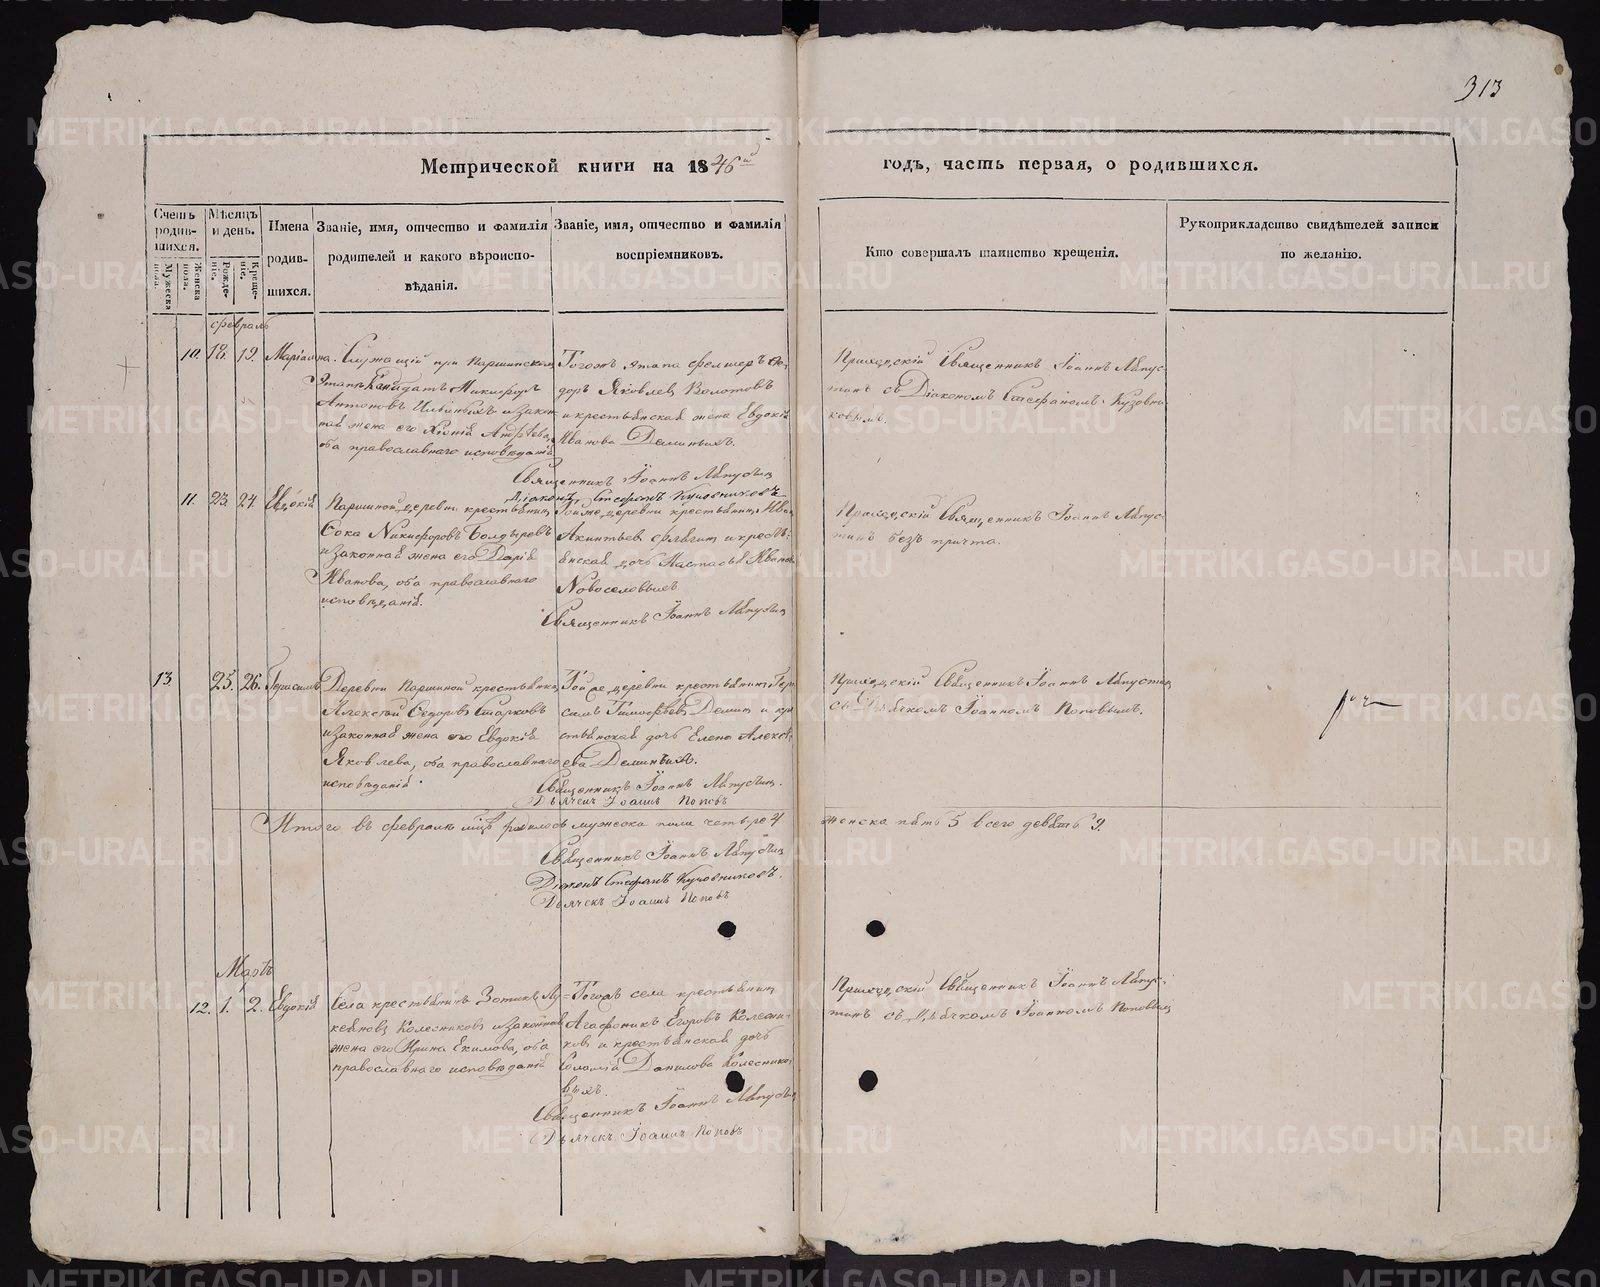 313
Метрической книги на 1846й годъ, часть первая, о родившихся.
Счетъ родив-шихся.
Мужеска пола.
Женска пола.
Мѣсяцъ и день.
Рожде-нія.
Креще-нія.
Имена родив-шихся.
Званіе, имя, отчество и фамилія родителей и какого вѣроиспо-вѣданія.
Званіе, имя, отчество и фамилія воспріемниковъ.
Кто совершалъ таинство крещенія.
Рукоприкладство свидѣтелей записи по желанію.
февраль
10. 18. 19. Маріамна.
Служащій при Паршинском
Этапѣ Никифоръ
Антоновъ и закон
ная жена его Хіонія
оба православнаго исповѣданія
Тогожъ этапа фелшеръ Фе-
доръ Яковлев Волотовъ
и крестьянская жена Евдокія
Иванова Деминыхъ.
Приходскій Священникъ Іоаннъ Ляпус-
тинъ съ Діакономъ Стефаномъ Кузовни-
ковымъ.
Священникъ Іоаннъ Ляпустин
Діаконъ Стефанъ Кузовниковъ
11. 23. 24. Евдокія
Паршиной деревни крестьянин
Сока Никифоровъ Болдыревъ
и законная жена его Дарія
Иванова, оба православнаго
исповѣданія.
Тойже деревни крестьянин
Акинтьев и кресть-
янская дочь Настасья Иванов
Новоселовыхъ
Священникъ Іоаннъ Ляпустин
Приходскій Священникъ Іоаннъ Ляпус-
тинъ безъ причта.
13 25. 26. Герасимъ
Деревни Паршиной крестьянин
Алексѣй Ѳедоровъ Старковъ
и законная жена его Евдокія
Яковлева, оба православнаго
исповѣданія.
Тойже деревни крестьянинъ Гера
симъ Тимофѣев Демин и кре
стьянская дочь Елена Алексѣ
ева Деминыхъ.
Священникъ Іоаннъ Ляпустин.
Дьячекъ Іоаннъ Поповъ
Приходскій Священникъ Іоаннъ Ляпустин
съ Дьячкомъ Іоанномъ Поповымъ.
Итого въ февралѣ мцѣ родилось мужеска пола четыре 4 женска пять 5 всего девять 9.
Священникъ Іоаннъ Ляпустин
Діаконъ Стефанъ Кузовниковъ.
Дьячекъ Іоаннъ Поповъ
Мартъ
12. 1. 2. Евдокія
Села крестьянинъ Зотикъ Лу-
кеяновъ Колесников и законная
жена его Ирина Екимова, оба
православнаго исповѣданія
Тогожъ села крестьянин
Агафоникъ Егоровъ Колесни-
ков и крестьянская дочь
Соломія Данилова Колеснико-
выхъ.
Священникъ Іоаннъ Ляпустин
Дьячекъ Іоаннъ Поповъ
Приходскій Священникъ Іоаннъ Ляпус-
тинъ съ Дьячкомъ Іоанномъ Поповым
METRIKI.GASO-URAL.RU